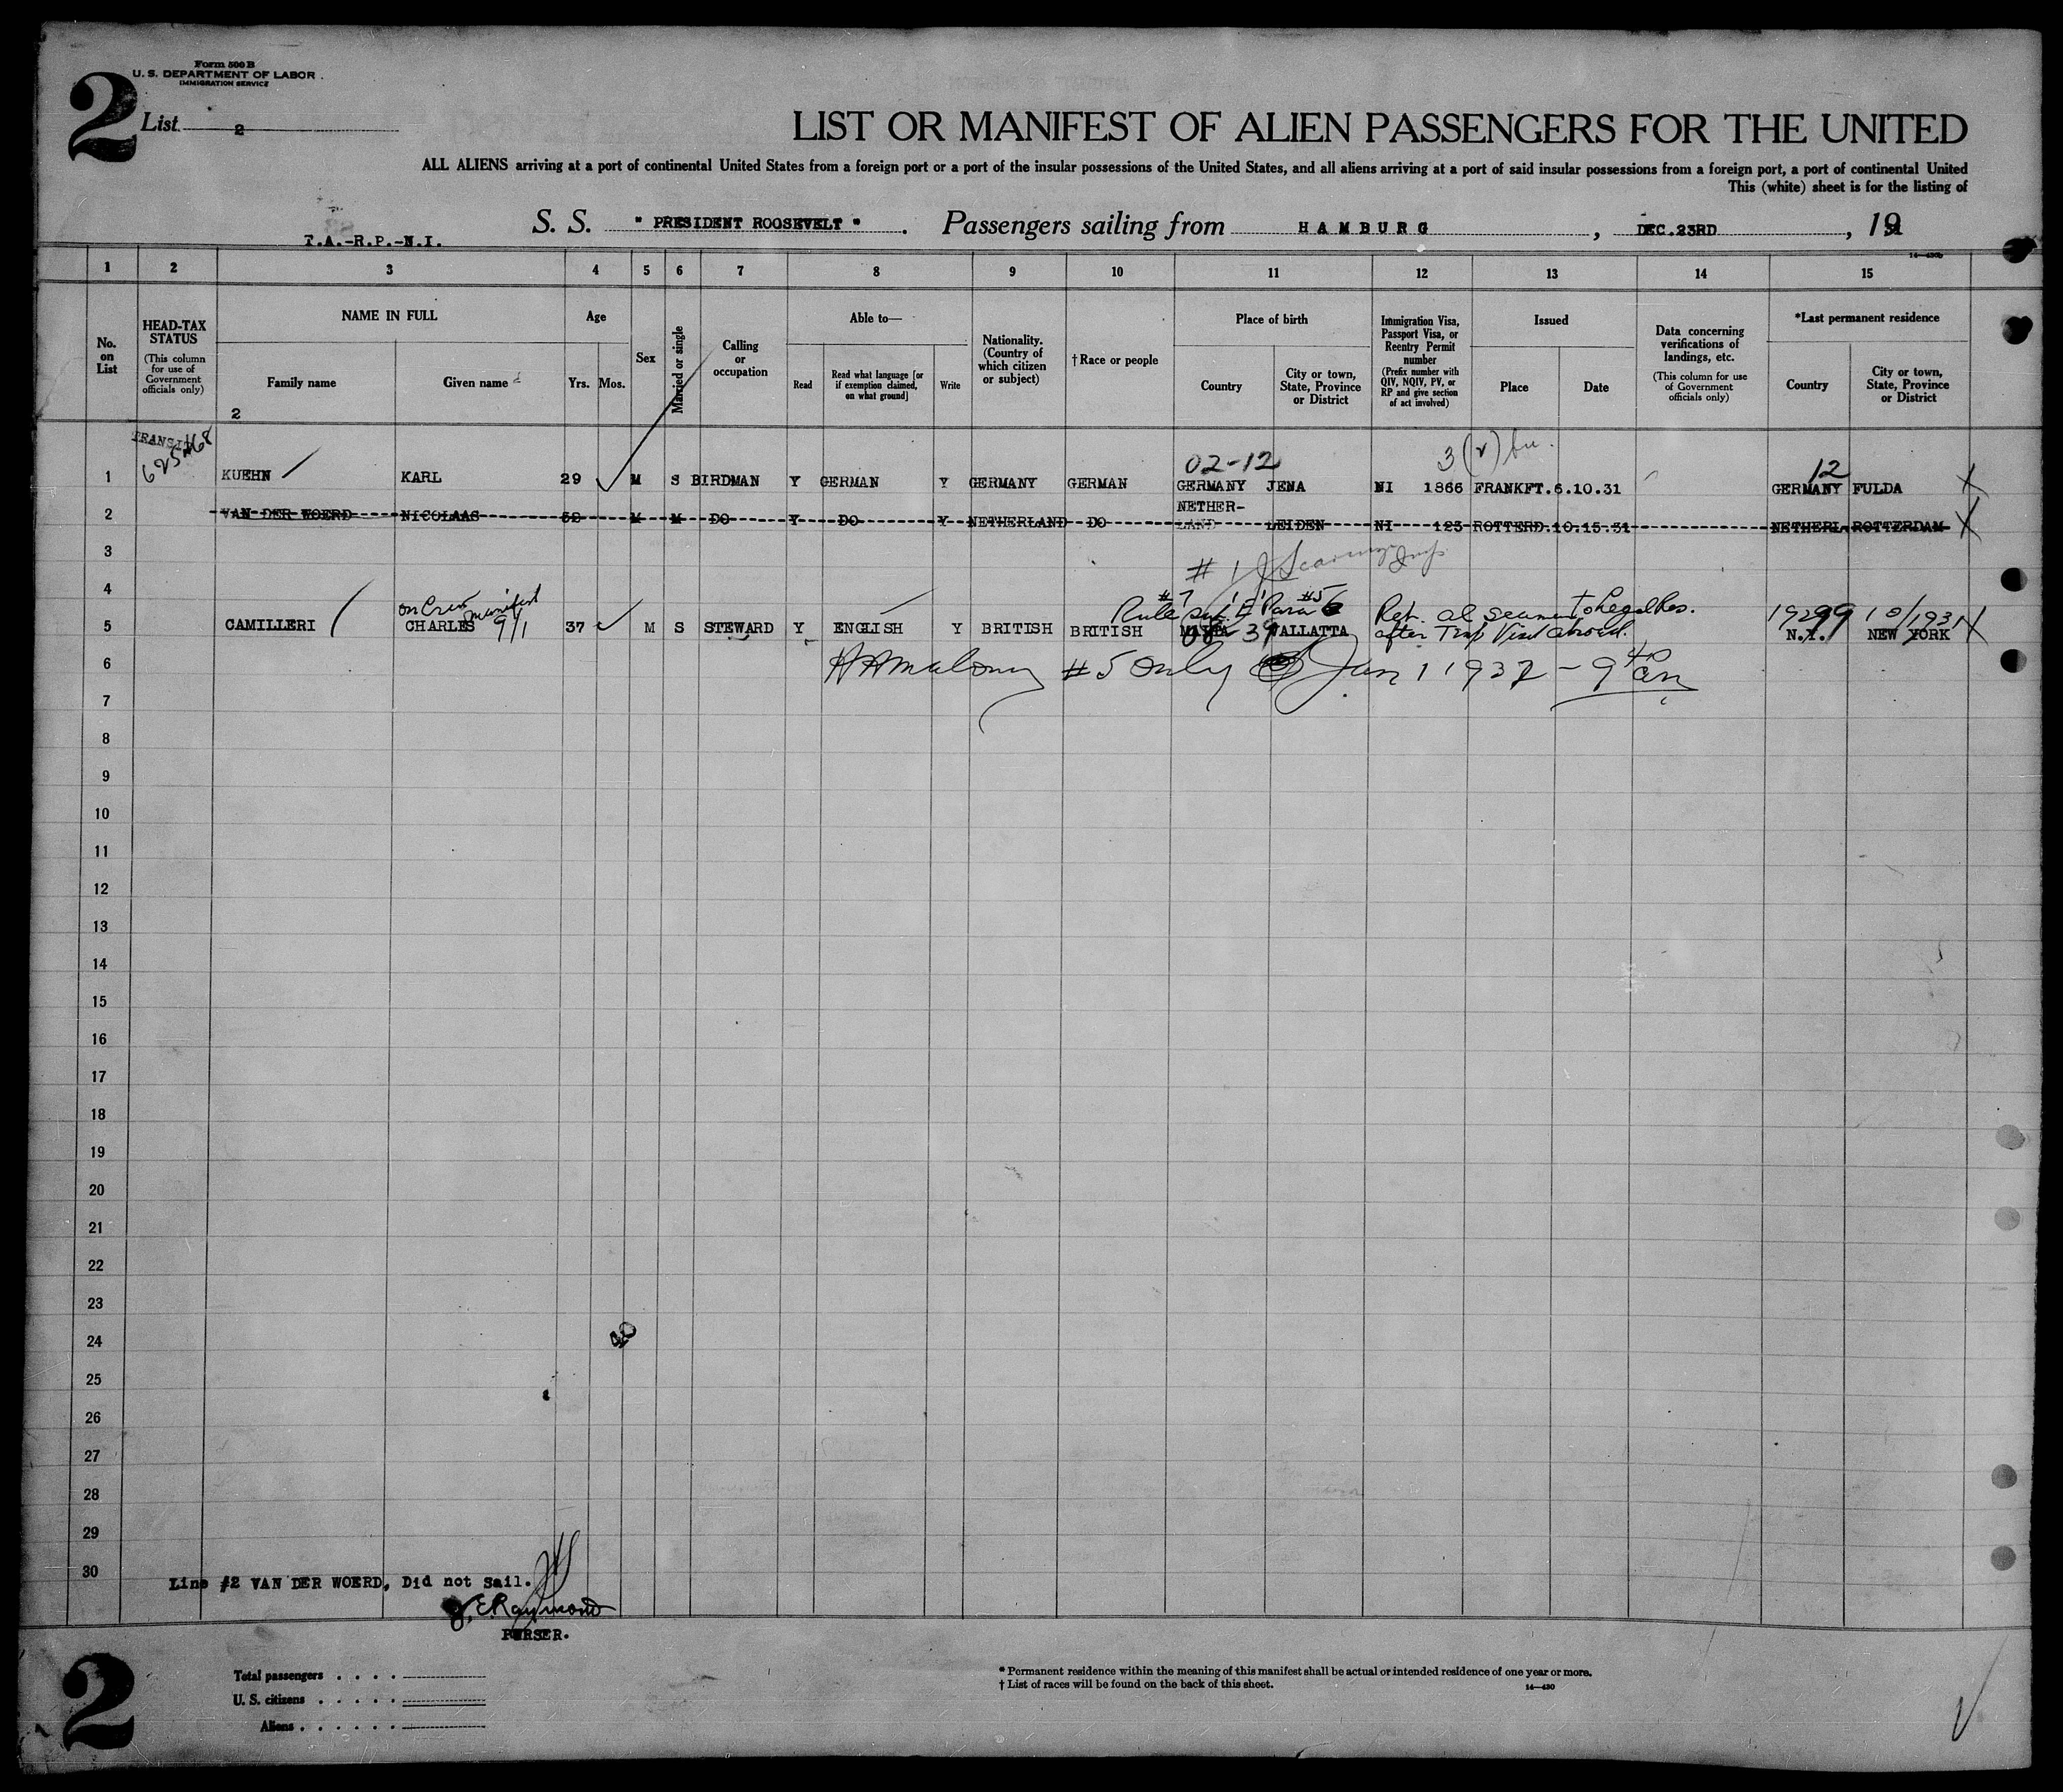 Form 500 B
U. S. DEPARTMENT OF LABOR
IMMIGRATION SERVICE
2
List 2
LIST OR MANIFEST OF ALIEN PASSENGERS FOR THE UNITED
ALL ALIENS arriving at a port of continental United States from a foreign port or a port of the insular possessions of the United States, and all aliens arriving at a port of said insular possessions from a foreign port, a port of continental United
This (white) sheet is for the listing of
T.A.-R.P.-N.I.
S. S. " PRESIDENT ROOSEVELT " . Passengers sailing from HAMBURG , DEC.23RD , 19
14—430b
1 2 3 4 5 6 7 8 9 10 11 12 13 14 15
No. on List
HEAD-TAX STATUS
(This column for use of Government officials only)
NAME IN FULL
Family name
Given name
2
Age
Yrs. Mos.
Sex
Married or single
Calling or occupation
Able to—
Read
Read what language [or if exemption claimed, on what ground]
Write
Nationality. (Country of which citizen or subject)
† Race or people
Place of birth
Country
City or town, State, Province or District
Immigration Visa, Passport Visa, or Reentry Permit number
(Prefix number with QIV, NQIV, PV, or RP and give section of act involved)
Issued
Place
Date
Data concerning verifications of landings, etc.
(This column for use of Government officials only)
*Last permanent residence
Country
City or town, State, Province or District
TRANSIT
02-12
3(2)
12
1 KUEHN KARL 29 M S BIRDMAN Y GERMAN Y GERMANY GERMAN GERMANY JENA NI 1866 FRANKFT.6.10.31 GERMANY FULDA X
2 VAN DER WOERD NICOLAAS 52 M M DO Y DO Y NETHERLAND DO NETHER-LAND LEIDEN NI 123 ROTTERD.10.15.31 NETHERL. ROTTERDAM X
3
# 1
4
on Crew manifest 9/1
#7 #5
Rule sub. E Para 6
Ret. al seaman to legal Res.
after Temp Visit abroad.
19299 10/1931
5 CAMILLERI CHARLES 37 M S STEWARD Y ENGLISH Y BRITISH BRITISH MALTA VALLATTA N.Y. NEW YORK X
6 #5 only Jan 1 1932 - 9 am
7
8
9
10
11
12
13
14
15
16
17
18
19
20
21
22
23
24
40
25
26
27
28
29
30
Line #2 VAN DER WOERD, Did not sail.
J. E. Raymond
PURSER.
2
Total passengers
U. S. citizens
Aliens
* Permanent residence within the meaning of this manifest shall be actual or intended residence of one year or more.
† List of races will be found on the back of this sheet.
14—430